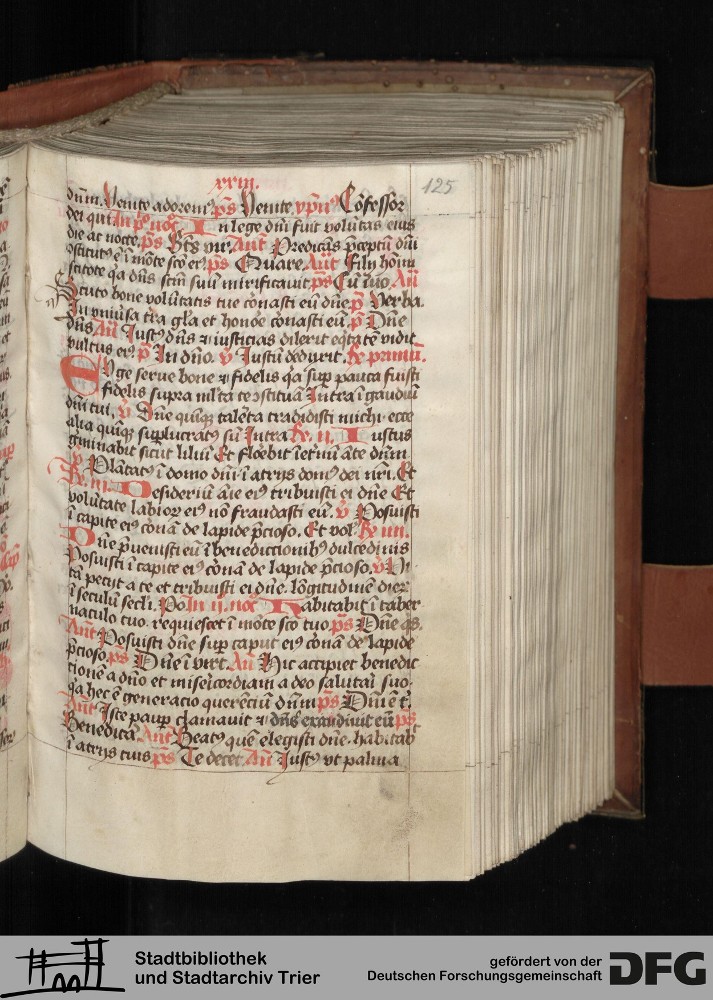 xxiii.
125
dūm. Venite adorem⁹ ps Venite. ypn⁹ Cōfessor
dei qui In p° noc° In lege dm̄ fuit volūtas eius
die ac nocte. ps Bt̄s vir. Ant̄ Predicās p̄ceptū dm̄
ɔstitut⁹ ē ī mōte scō ei⁹. ps Quare. Ant̄ Filij hoīm
scitote qa dn̄s sctm̄ suū mirificauit ps Cū īuo. An̄
Scuto bone volūtatis tue coronasti eū dn̄e. ps Verba.
In vniūsa tr̄a gl̄a et honōe coronasti eū. ps Dn̄e
dn̄s An̄ Just⁹ dn̄s ⁊ iusticias dilexit eq̄tatē vidit
vultus ei⁹. ps In dn̄o. v̄ Justū deduxit. Re primū.
Euge serue bone ⁊ fidelis qa sup pauca fuisti
fidelis supra ml̄ta te ɔstituā Intra ī gaudiū
dn̄i tui. v̄ Dn̄e quiq̄ talēta tradidisti michi ecce
alia quiq̄ suplucrat⁹ sū Intra Re. ii. Iustus
gminabit sicut liliū Et floēbit īetnū āte dn̄m
v̄ Plātat⁹ ī domo dn̄i ī atrijs dom⁹ dei nr̄i. Et
Re. iii. Desideriū aīe ei⁹ tribuisti ei dn̄e Et
volūtate labior ei⁹ nō fraudasti eū. v̄ Posuisti
ī capite ei⁹ coronā de lapide p̄cioso. Et vol. Re iiii.
Dn̄e p̄uenisti eū ī benedictionib⁹ dulcedinis
Posuisti ī capite ei⁹ coronā de lapide p̄cioso. v̄ Vi
tā petijt a te et tribuisti ei dn̄e. lōgitudinē dier
ī seculū secl̄i. Po In ii. noc° Habitabit ī taber
naculo tuo. requiescet ī mōte scō tuo ps Dn̄e qs.
Ant̄ Posuisti dn̄e sup caput ei⁹ coronā de lapide
p̄cioso. ps Dn̄e ī virt. An̄ Hic accipiet benedic
tionē a dn̄o et misericordiam a deo salutari suo.
qa hec ē generacio querētiū dn̄m ps Dn̄i ē t.
Ant̄ Iste paup clamauit ⁊ dn̄s exaudiuit eū ps
Benedicā. Ant̄ Beat⁹ quē elegisti dn̄e. habitab
ī atrijs tuis ps Te decet. An̄ Just⁹ vt palma
Stadtbibliothek
und Stadtarchiv Trier
gefördert von der
Deutschen Forschungsgemeinschaft
DFG